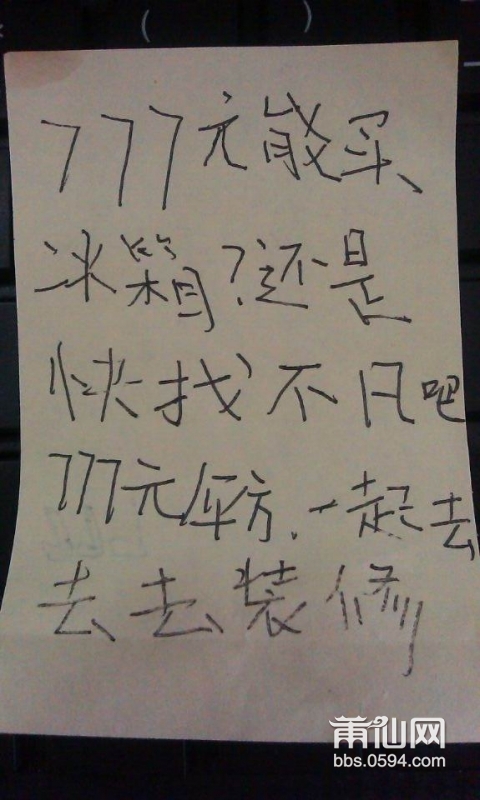 777元能买
冰箱?还是
快找不凡吧
777元/平方、一起去
去去装修
莆仙网
bbs.0594.com